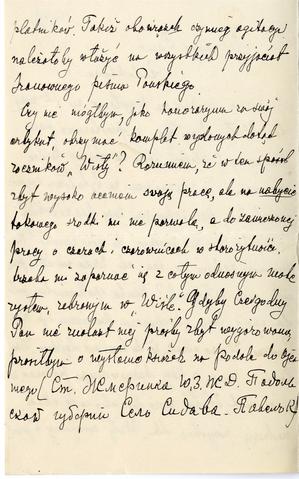 płatników. Takiż obowiązek czynnej agitacyi
należałoby włożyć na wszystkich przyjaciół
Szanownego pisma Pańskiego.
Czy nie mógłbym, jako honoraryum za mój
artykuł, otrzymać komplet wydanych dotąd
roczników „Wisły"? Rozumiem, że w ten sposób
zbyt wysoko oceniam swoją pracę, ale na nabycie
takowego środki mi nie pozwolą, a do zamierzonej
pracy o czarach i czarownicach w starożytności
trzeba mi zapoznać się z całym odnośnym mate-
ryałem, zebranym w „Wiśle". Gdyby Czcigodny
Pan nie znalazł mej prośby zbyt wygórowaną,
prosiłbym o wysłanie książek na Podole do
(Ст. Жмеринка Ю.З.Ж.Д. Подоль-
ской губерніи Село Сидава.